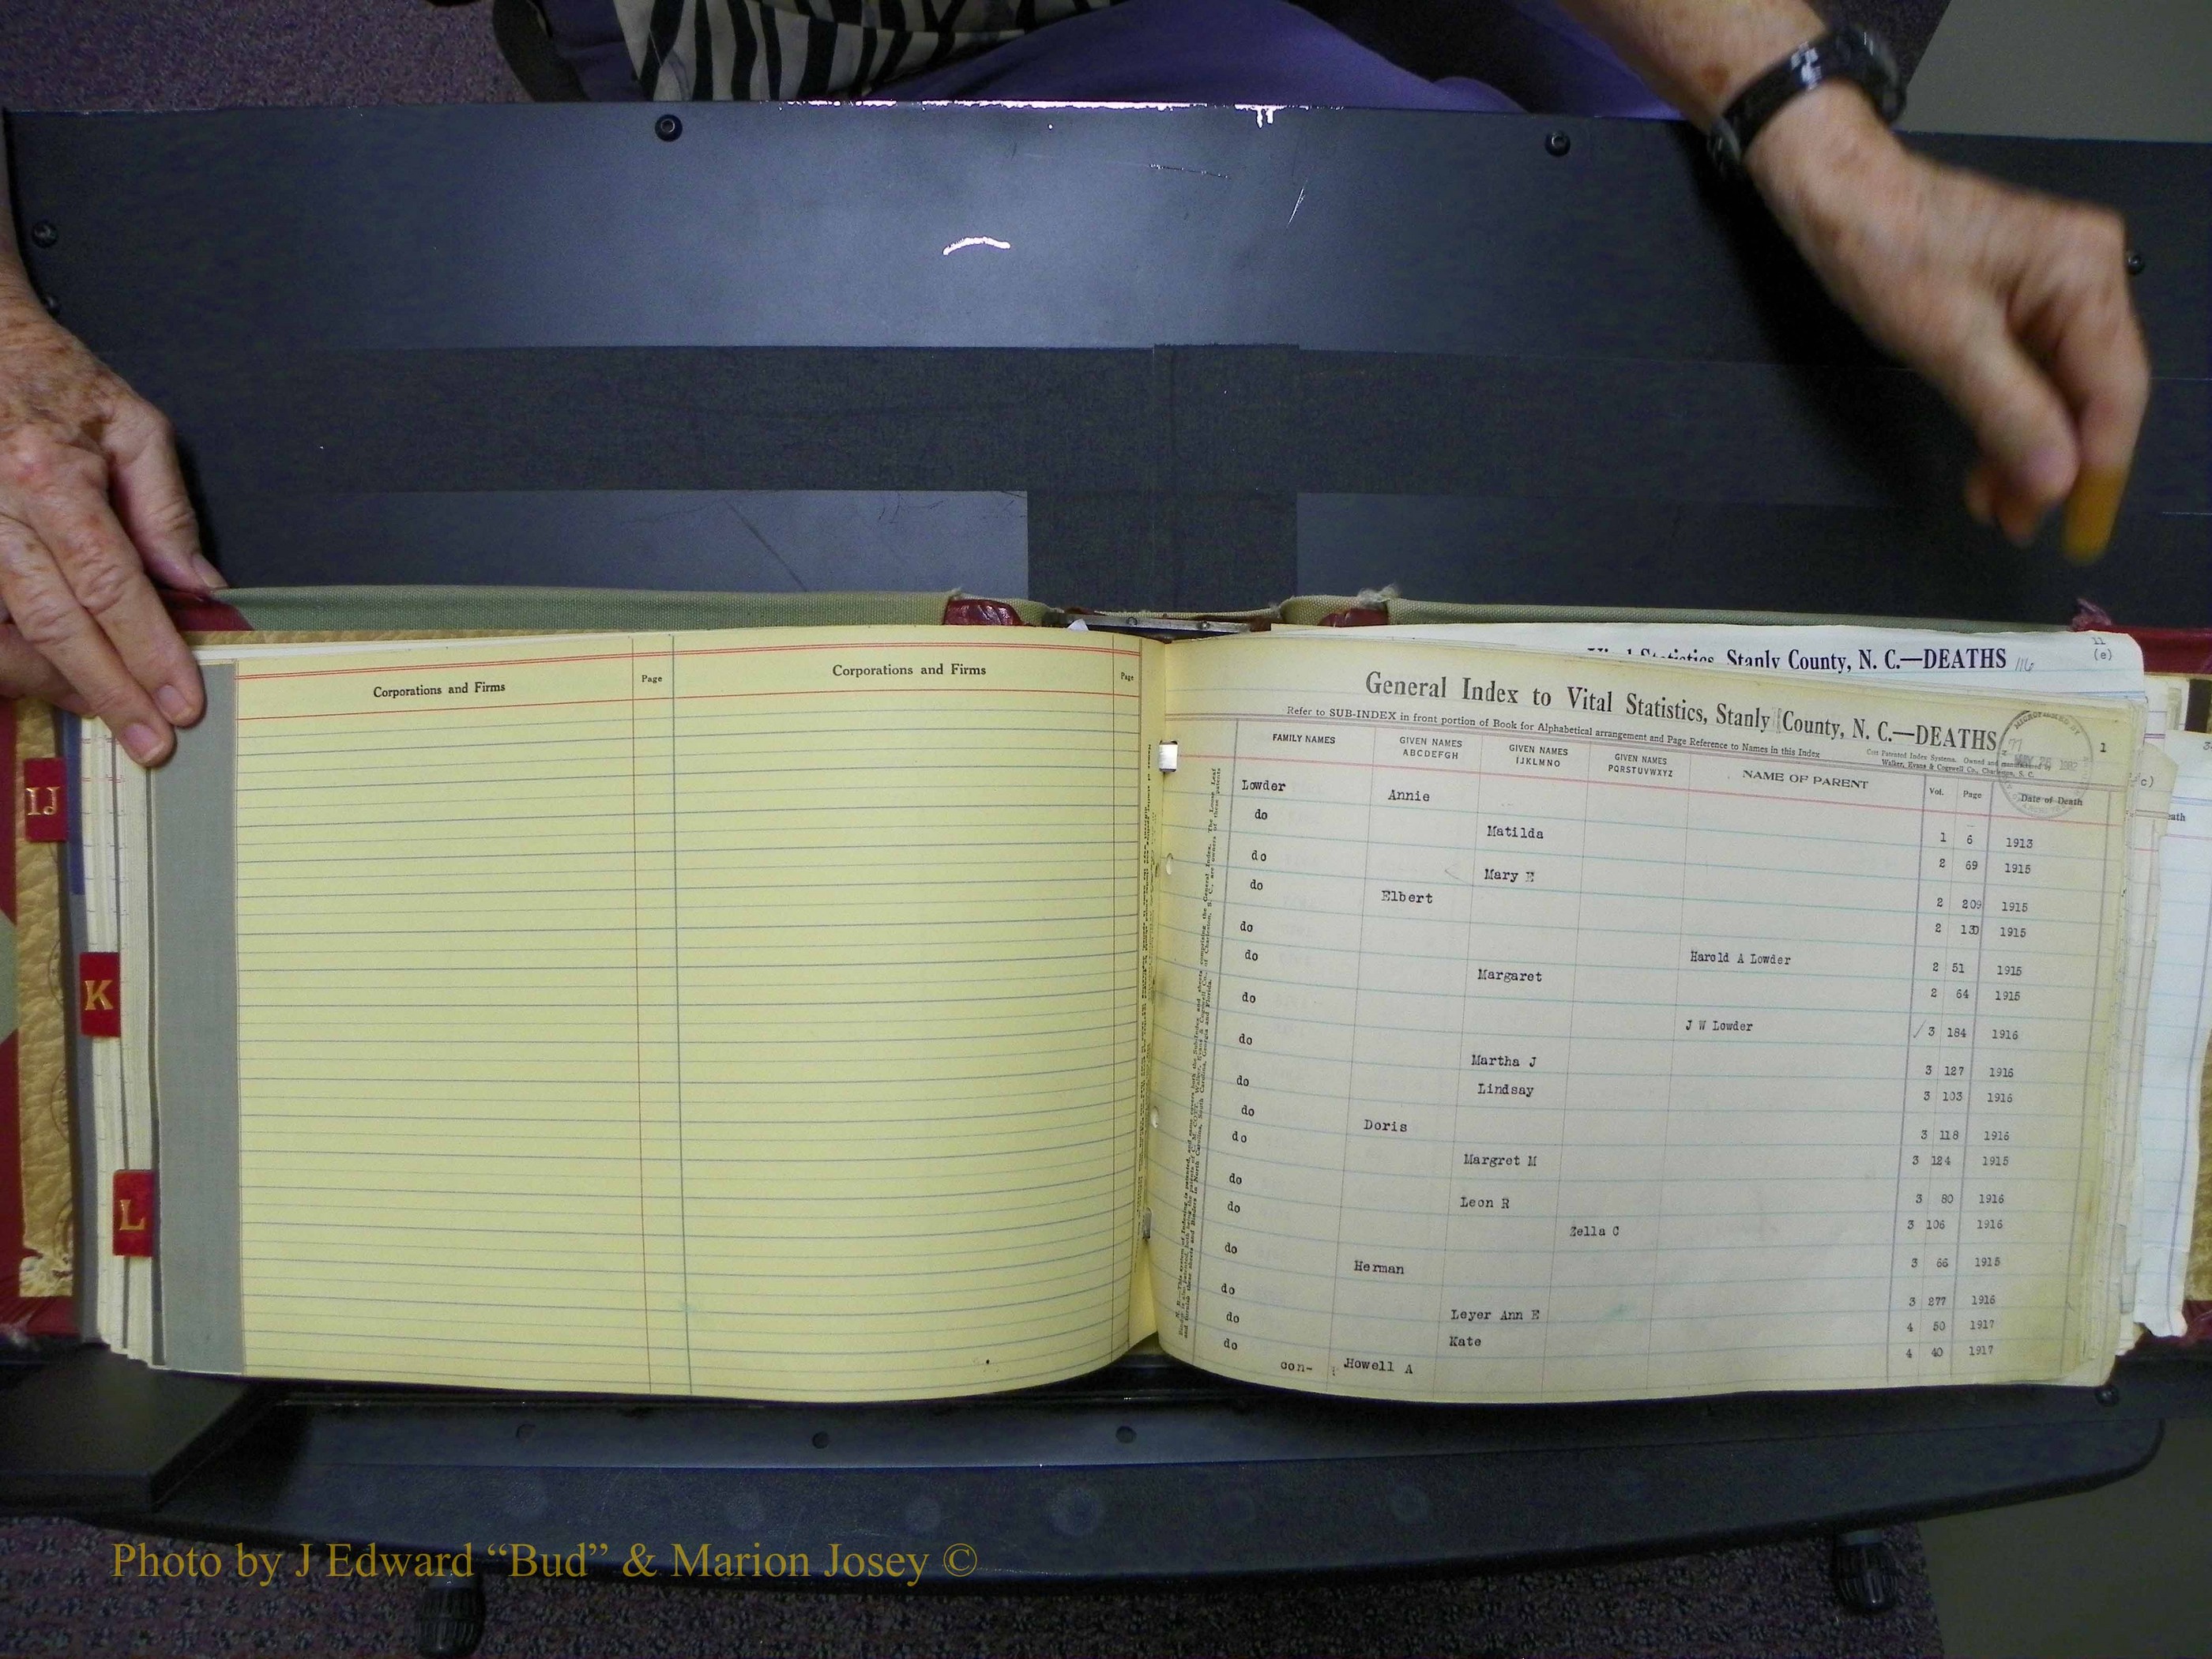 Corporations and Firms
Page
Corporations and Firms
Page
IJ
K
L
Statistics, Stanly County, N. C.—DEATHS 116
11
(e)
General Index to Vital Statistics, Stanly County, N. C.—DEATHS
1
Refer to SUB-INDEX in front portion of Book for Alphabetical arrangement and Page Reference to Names in this Index
Cott Patented Index Systems. Owned and manufactured by
Walker, Evans & Cogswell Co., Charleston, S. C.
MICROFILMED BY
FAMILY NAMES GIVEN NAMES ABCDEFGH GIVEN NAMES IJKLMNO GIVEN NAMES PQRSTUVWXYZ NAME OF PARENT Vol. Page Date of Death
Lowder Annie 1 6 1913
do Matilda 2 69 1915
do Mary E 2 209 1915
do Elbert 2 130 1915
do Harold A Lowder 2 51 1915
do Margaret 2 64 1915
do J W Lowder 3 184 1916
do Martha J 3 127 1916
do Lindsay 3 103 1916
do Doris 3 118 1916
do Margret M 3 124 1915
do Leon R 3 80 1916
do Zella C 3 106 1916
do Herman 3 66 1915
do Leyer Ann E 3 277 1916
do Kate 4 50 1917
do Howell A 4 40 1917
con-
Photo by J Edward “Bud” & Marion Josey ©